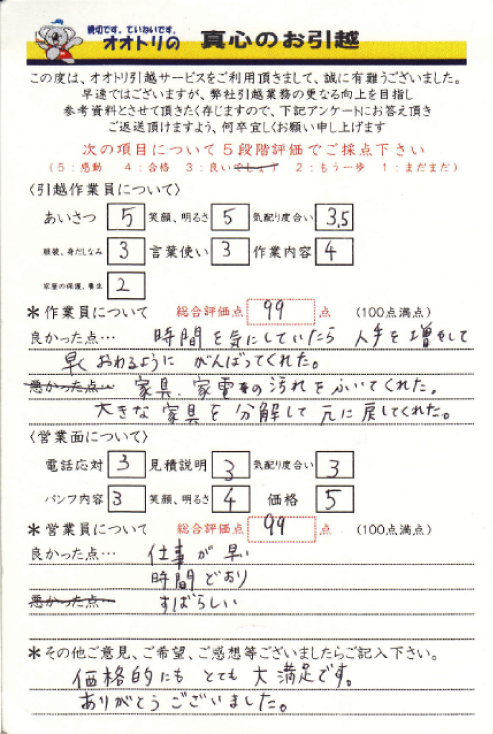 親切です。ていねいです。
オオトリの 真心のお引越
この度は、オオトリ引越サービスをご利用頂きまして、誠に有難うございました。
早速ではございますが、弊社引越業務の更なる向上を目指し
参考資料とさせて頂きたく存じますので、下記アンケートにお答え頂き
ご返送頂けますよう、何卒宜しくお願い申し上げます
次の項目について5段階評価でご採点下さい
(5:感動 4:合格 3:良いでしょう 2:もう一歩 1:まだまだ)
〈引越作業員について〉
あいさつ 5 笑顔、明るさ 5 気配り度合い 3,5
服装、身だしなみ 3 言葉使い 3 作業内容 4
家屋の保護、養生 2
*作業員について 総合評価点 99 点 (100点満点)
良かった点… 時間を気にしていたら 人手を増やして
早く おわるように がんばってくれた。
悪かった点… 家具、家電の汚れをふいてくれた。
大きな家具を分解して元に戻してくれた。
〈営業面について〉
電話応対 3 見積説明 3 気配り度合い 3
パンフ内容 3 笑顔、明るさ 4 価格 5
*営業員について 総合評価点 99 点 (100点満点)
良かった点… 仕事が早い
時間どおり
悪かった点… すばらしい
*その他ご意見、ご希望、ご感想等ございましたらご記入下さい。
価格的にも とても 大満足です。
ありがとうございました。